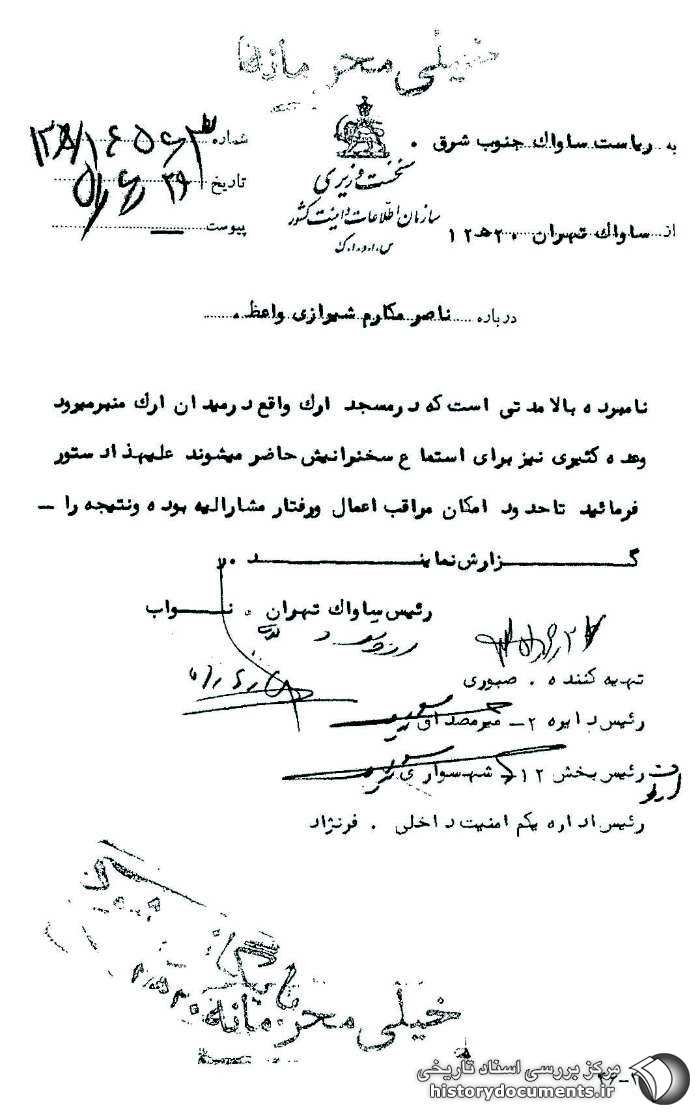 خیلی محرمانه
به ریاست ساواک جنوب شرق .
شماره
تاریخ
پیوست
نخست وزیری
سازمان اطلاعات و امنیت کشور
س.ا.و.ا.ک
از ساواک تهران . ۲۰ هـ ۱۲
درباره ناصر مکارم شیرازی واعظ .
نامبرده بالا مدتی است که در مسجد ارک واقع در میدان ارک منبر میرود
وعده کثیری نیز برای استماع سخنرانیش حاضر میشوند علیهذا دستور
فرمائید تا حدود امکان مراقب اعمال ورفتار مشارالیه بوده ونتیجه را –
گزارش نمایند .
رئیس ساواک تهران . نواب
تهیه کننده . صبوری
رئیس دایره ۲ – میرمصداق
رئیس بخش ۱۲ – شهسواری
رئیس اداره یکم امنیت داخلی . فرنژاد
خیلی محرمانه
مرکز بررسی اسناد تاریخی
historydocuments.ir